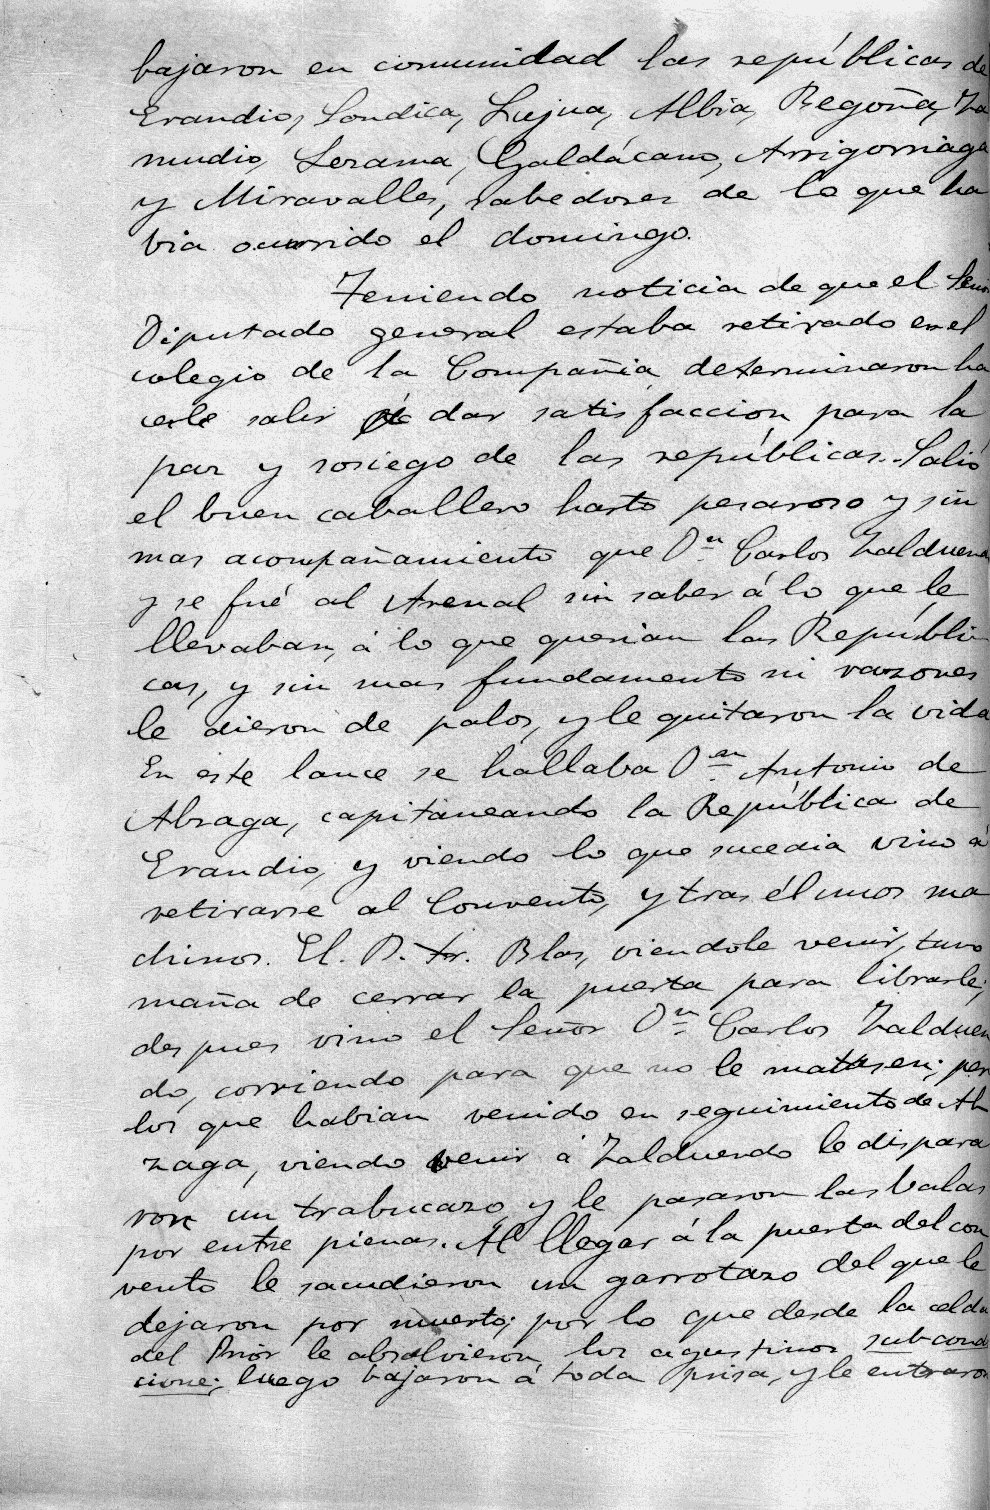 bajaron en comunidad las repúblicas de
Erandio, Sondica, Lujua, Albia, Begoña, Za
mudio, Lezama, Galdácano, Arrigorriaga
y Miravalles, sabedores de lo que ha
bia ocurrido el domingo.
Teniendo noticia de que el Señor
Diputado general estaba retirado en el
colegio de la Compañia determinaron ha
cerle salir á dar satisfaccion para la
paz y sosiego de las repúblicas. Salió
el buen caballero harto pesaroso y sin
mas acompañamiento que Dn Carlos Zalduendo
y se fué al Arenal sin saber á lo que le
llevaban, á lo que querian las Repúbli-
cas, y sin mas fundamento ni razones
le dieron de palos, y le quitaron la vida
En este lance se hallaba Dn Antonio de
Alzaga, capitaneando la República de
Erandio, y viendo lo que sucedia vino á
retirarse al Convento, y tras él unos ma
chinos. El. P. Fr. Blas, viendole venir, tuvo
maña de cerrar la puerta para librarle;
despues vino el Señor Dn Carlos Zalduen
do, corriendo para que no le matasen; pero
los que habian venido en seguimiento de Al
zaga, viendo venir á Zalduendo le dispara
ron un trabucazo y le pasaron las balas
por entre piernas. Al llegar á la puerta del con
vento le sacudieron un garrotazo del que le
dejaron por muerto; por lo que desde la celda
del Prior le absolvieron los agustinos sub condi
cione; luego bajaron á toda prisa, y le entraron